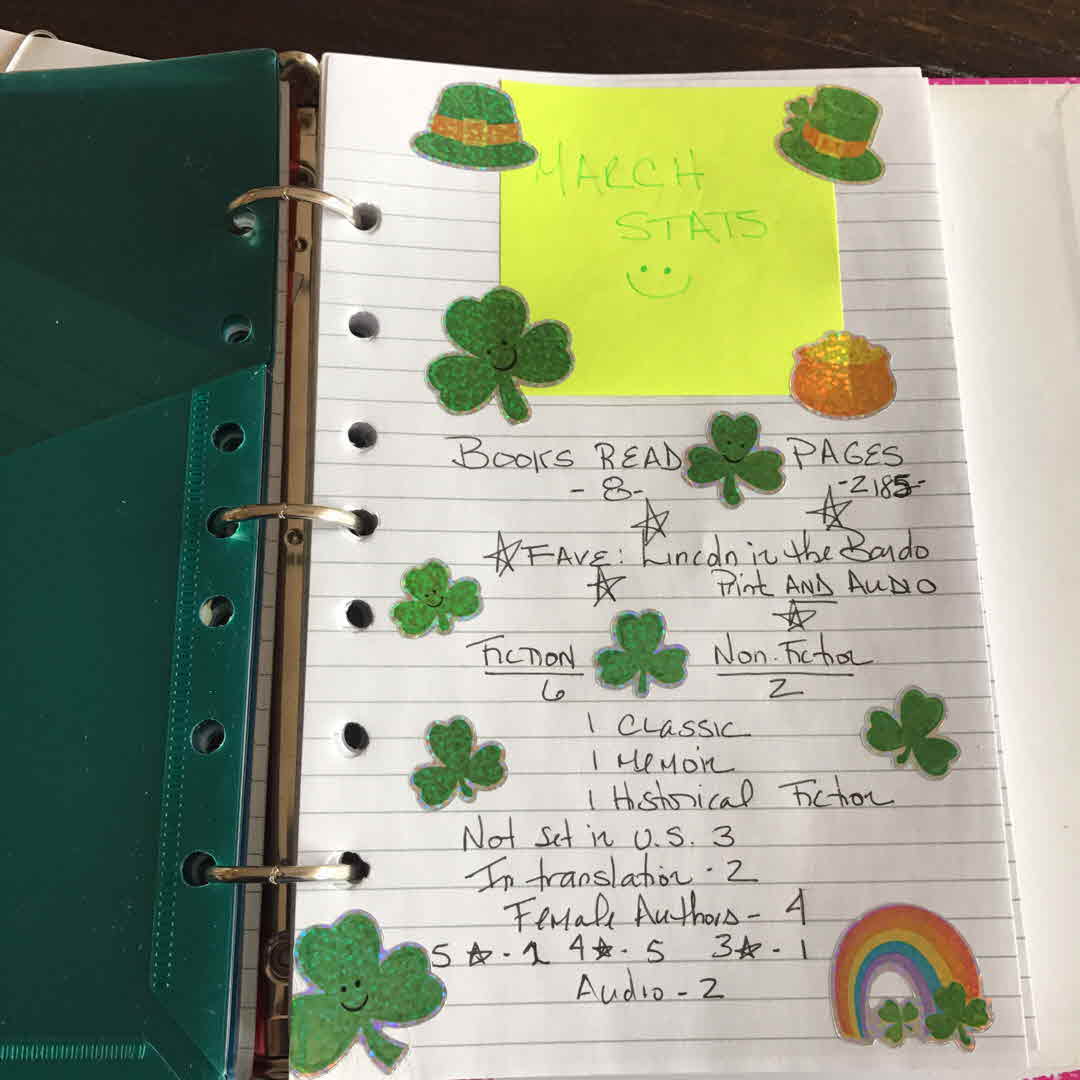 MARCH
STATS
BOOKS READ PAGES
- 8 - - 2185 -
☆ FAVE: Lincoln in the Bardo
Print AND AUDIO
FICTION Non-Fiction
6 2
1 CLASSIC
1 MEMOIR
1 Historical Fiction
Not set in U.S. 3
In translation - 2
Female Authors - 4
5 ☆ - 2 4 ☆ - 5 3 ☆ - 1
Audio - 2